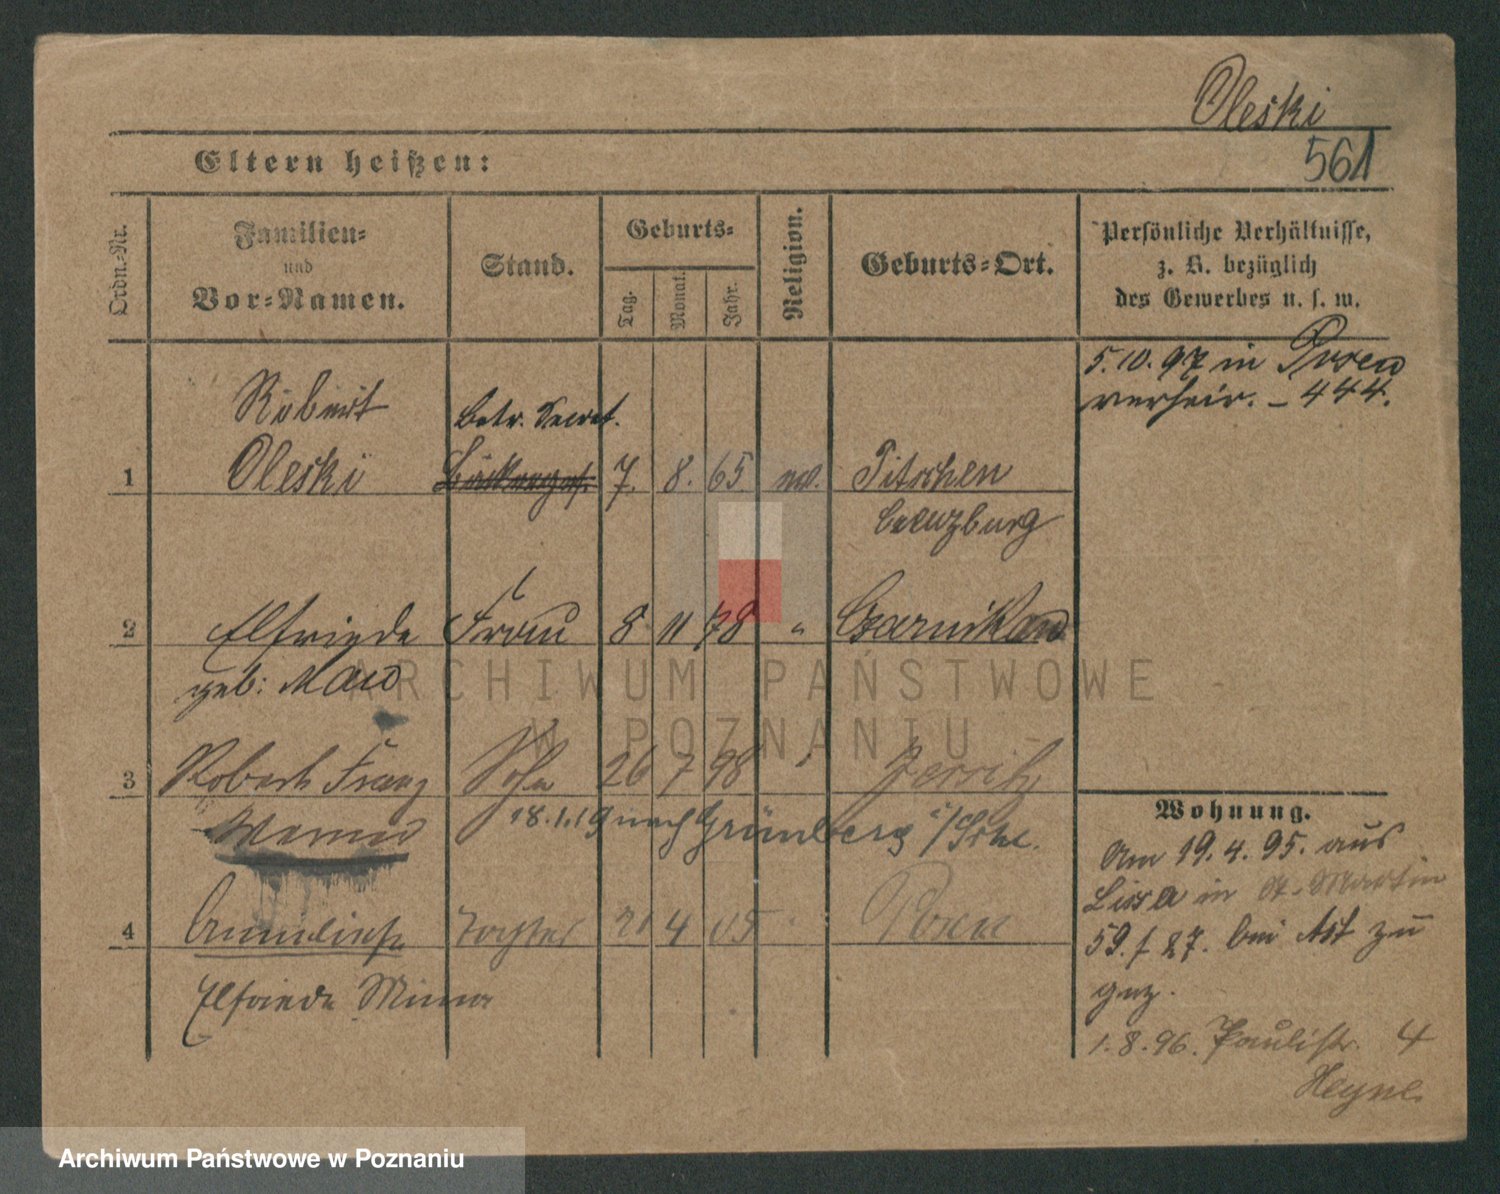 Oleski
561
Eltern heißen:
Ordn.-Nr.
Familien-
und
Vor-Namen.
Stand.
Geburts-
Tag.
Monat.
Jahr.
Religion.
Geburts-Ort.
Persönliche Verhältnisse,
z. B. bezüglich
des Gewerbes u. s. w.
5.10.97 in Posen
verheir. – 444.
Robert
Betr. Secret.
1 Oleski 7. 8. 65 ev. Pitschen
Creuzburg
2 Elfriede Frau 8 11 78 " Czarnikau
geb:
ARCHIWUM PAŃSTWOWE
W POZNANIU
3 Robert Franz Sohn 26 7 98 " Jersitz
Werner
18.1.19 nach Grünberg i/Schl.
4 Anneliese Tochter 21 4 05 " Posen
Elfriede Minna
Wohnung.
Am 19.4.95. aus
Lissa in St. Martin
59. f 27. bei Ast zu
gez.
1.8.96. Paulistr. 4
Heyne.
Archiwum Państwowe w Poznaniu